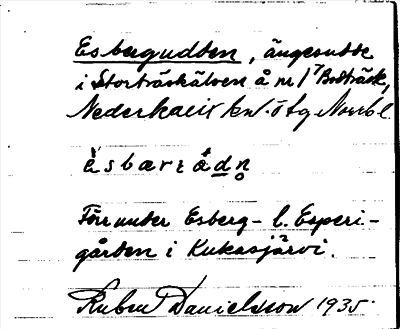 Esbergudden, ängesudde
i Storträskälven å nr 1⁷ Bodträsk,
Nederkalix kn. ö tg Norrb l.
èsbærɩådn̥
Förr under Esberg- l. Esperi-
gården i Kukasjärvi.
Ruben Danielsson 1935.